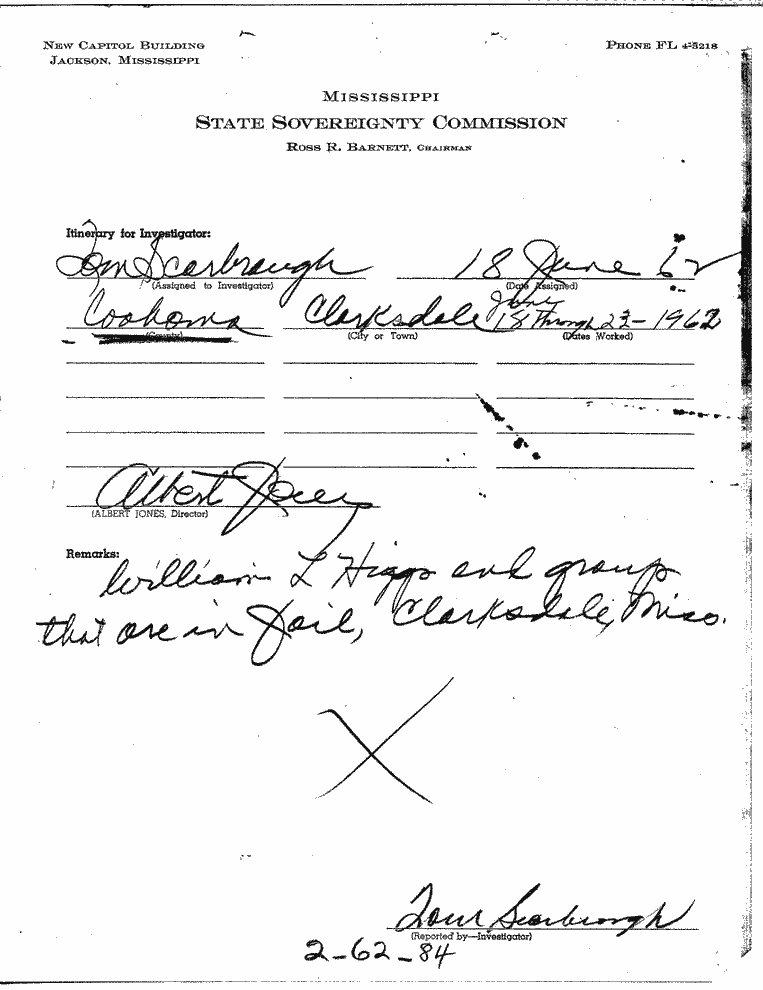 NEW CAPITOL BUILDING
JACKSON, MISSISSIPPI
PHONE FL 4-5218
MISSISSIPPI
STATE SOVEREIGNTY COMMISSION
ROSS R. BARNETT, CHAIRMAN
Itinerary for Investigator:
Tom Scarbrough 18 June 62
(Assigned to Investigator) (Date Assigned)
June
Coahoma Clarksdale 18 Through 22-1962
(County) (City or Town) (Dates Worked)
Albert Jones
(ALBERT JONES, Director)
Remarks:
William L Higgs and group
that are in Jail, Clarksdale, Miss.
X
Tom Scarbrough
(Reported by—Investigator)
2-62-84